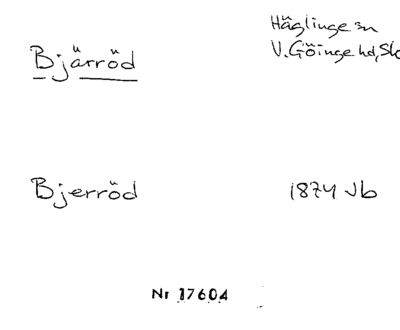 Häglinge sn
Bjärröd
V. Göinge hd, Sk
Bjerröd
1874 Jb
Nr 17604